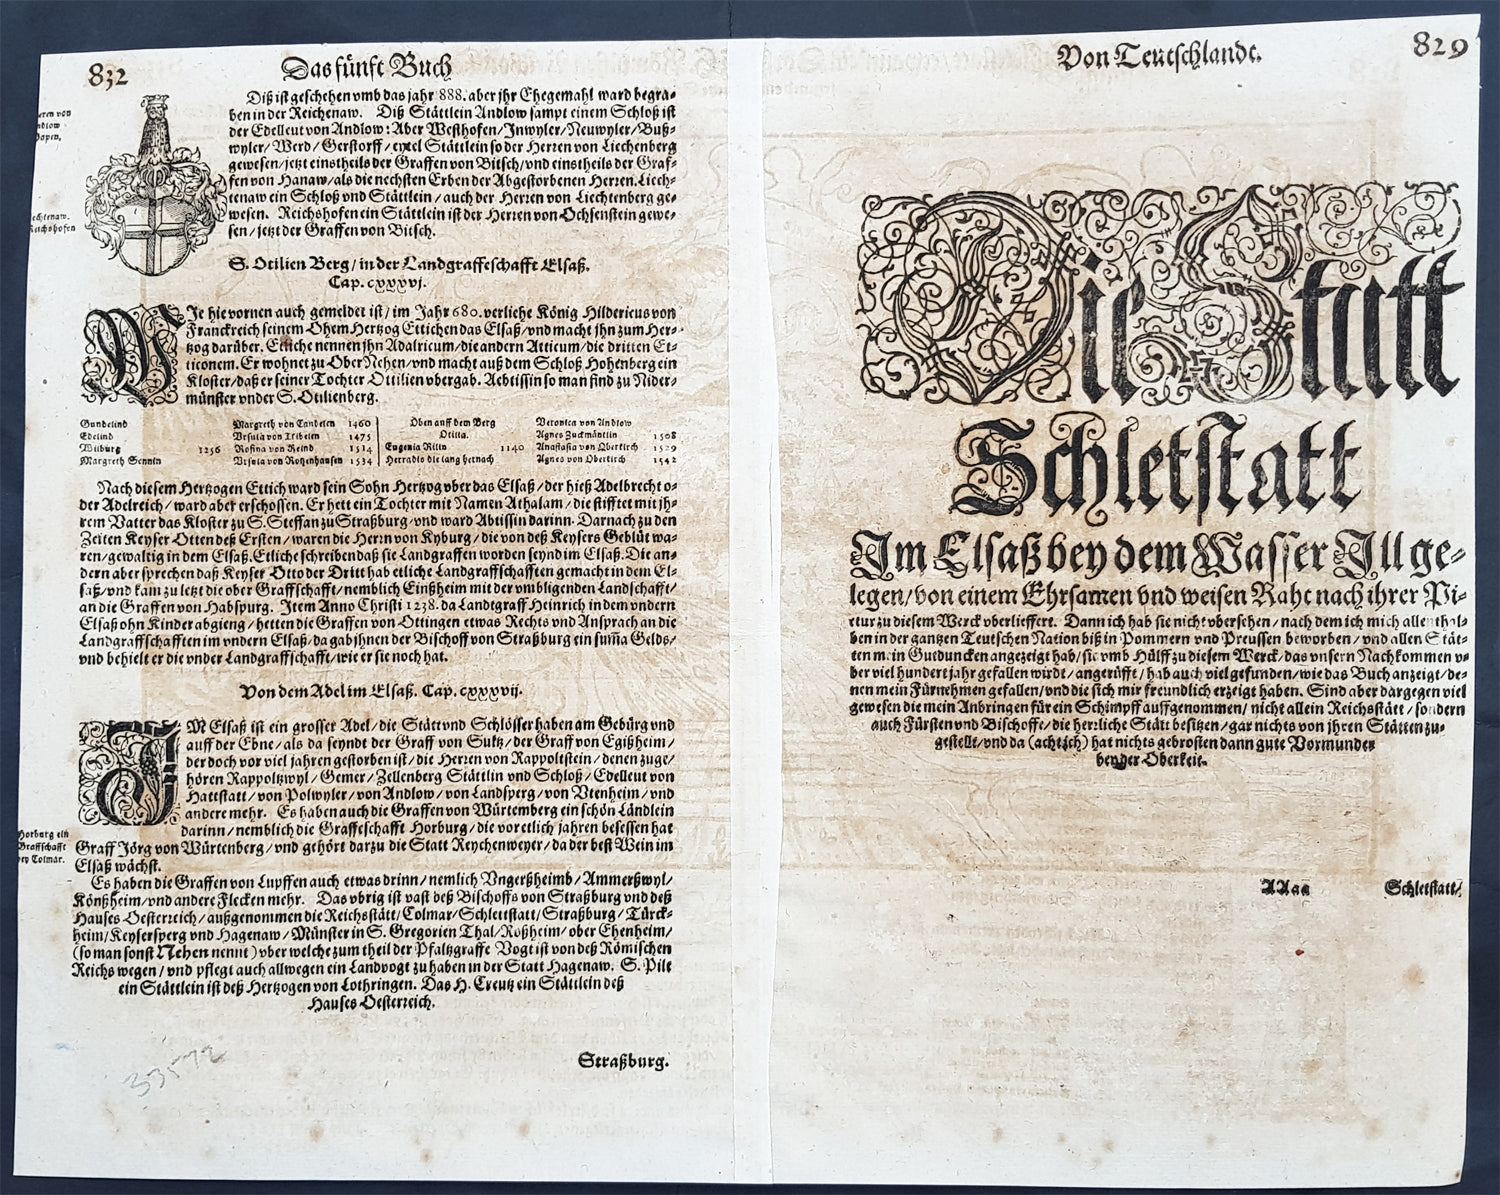 832
Das fünft Buch
Diß ist geschehen vmb das jahr 888. aber jhr Ehegemahl ward begra-
ben in der Reichenaw. Diß Stättlein Andlow sampt einem Schloß ist
der Edelleut von Andlow: Aber Westhofen/Inwyler/Neuwyler/Buß-
wyler/Werd/Gerstorff/eytel Stättlein so der Herren von Liechenberg
gewesen/jetzt einstheils der Graffen von Bitsch/vnd einstheils der Graf-
fen von Hanaw/als die nechsten Erben der Abgestorbenen Herren. Liech-
tenaw ein Schloß vnd Stättlein/auch der Herren von Liechtenberg ge-
wesen. Reichshofen ein Stättlein ist der Herren von Ochsenstein gewe-
sen/jetzt der Graffen von Bitsch.
Reichshofen
S. Otilien Berg/in der Landgraffeschafft Elsaß.
Cap. cxxxvj.
WJe hievornen auch gemeldet ist/im Jahr 680. verliche König Hildericus von
Franckreich seinem Ohem Hertzog Ettichen das Elsaß/vnd macht jhn zum Her-
tzog darüber. Etliche nennen jhn Adalricum/die andern Atticum/die dritten Et-
ticonem. Er wohnet zu Ober Nehen/vnd macht auß dem Schloß Hohenberg ein
Kloster/daß er seiner Tochter Ottilien vbergab. Aebtissin so man find zu Nider-
münster vnder S. Otilienberg.
Gundelind
Edelind
Wilburg 1256
Margreth Sennin
Margreth von Candelen 1460
Vrsula von Tribelen 1475
Rosina von Reind 1514
Vrsula von Rotzenhausen 1534
Oben auff dem Berg
Otilia.
Eugenia Rilin 1140
Herradis die lang hernach
Veronica von Andlow
Agnes Zuckmäntlin 1508
Anastasia von Oberkirch 1529
Agnes von Oberkirch 1542
Nach diesem Hertzogen Ettich ward sein Sohn Hertzog vber das Elsaß/der hieß Adelbrecht o-
der Adelreich/ward aber erschossen. Er hett ein Tochter mit Namen Athalam/die stifftet mit jh-
rem Vatter das Kloster zu S. Steffan zu Straßburg/vnd ward Abtissin darinn. Darnach zu den
Zeiten Keyser Otten deß Ersten/waren die Herrn von Kyburg/die von deß Keysers Geblüt wa-
ren/gewaltig in dem Elsaß. Etliche schreiben daß sie Landgraffen worden seynd im Elsaß. Die an-
dern aber sprechen daß Keyser Otto der Dritt hab etliche Landgraffschafften gemacht in dem El-
saß/vnd kam zu letzt die ober Graffschafft/nemblich Einßheim mit der vmbligenden Landschafft/
an die Graffen von Habspurg. Item Anno Christi 1238. da Landtgraff Heinrich in dem vndern
Elsaß ohn Kinder abgieng/hetten die Graffen von Ottingen etwas Rechts vnd Ansprach an die
Landtgraffschafften im vndern Elsaß/da gab jhnen der Bischoff von Straßburg ein sum̃a Gelds/
vnd behielt er die vnder Landgraffschafft/wie er sie noch hat.
Von dem Adel im Elsaß. Cap. cxxxvij.
JM Elsaß ist ein grosser Adel/die Stätt vnd Schlösser haben am Gebürg vnd
auff der Ebne/als da seyndt der Graff von Sultz/der Graff von Egißheim/
der doch vor viel jahren gestorben ist/die Herren von Rappoltstein/denen zuge-
hören Rappoltzwyl/Gemer/Zellenberg Stättlin vnd Schloß/Edelleut von
Hattstatt/von Polwyler/von Andlow/von Landsperg/von Vtenheim/vnd
andere mehr. Es haben auch die Graffen von Würtemberg ein schön Ländlein
darinn/nemblich die Graffeschafft Horburg/die vor etlich jahren besessen hat
Graff Jörg von Würtenberg/vnd gehört darzu die Statt Reychenweyer/da der best Wein im
Elsaß wächst.
Horburg ein
Graffschafft
bey Colmar.
Es haben die Graffen von Lupffen auch etwas drinn/nemlich Vngerßheimb/Ammerßwyl/
Könßheim/vnd andere Flecken mehr. Das vbrig ist vast deß Bischoffs von Straßburg vnd deß
Hauses Oesterreich/außgenommen die Reichsstätt/Colmar/Schlettstatt/Straßburg/Türck-
heim/Keysersperg vnd Hagenaw/Münster in S. Gregorien Thal/Roßheim/ober Ehenheim/
(so man sonst Nehen nennt) vber welche zum theil der Pfaltzgraffe Vogt ist von deß Römischen
Reichs wegen/vnd pflegt auch allwegen ein Landvogt zu haben in der Statt Hagenaw. S. Pilt
ein Stättlein ist deß Hertzogen von Lothringen. Das H. Creutz ein Stättlein deß
Hauses Oesterreich.
Straßburg.
33572
Von Teutschlandt.
829
Die Statt
Schletstatt
Im Elsaß bey dem Wasser Ill ge-
legen/von einem Ehrsamen vnd weisen Raht nach ihrer Pi-
ctur zu diesem Werck vberlieffert. Dann ich hab sie nicht vbersehen/nach dem ich mich allenthal-
ben in der gantzen Teutschen Nation biß in Pommern vnd Preussen beworben/vnd allen Stät-
ten mein Gutduncken angezeigt hab/sie vmb Hülff zu diesem Werck/das vnsern Nachkommen v-
ber viel hundert jahr gefallen wirdt/angerüfft/hab auch viel gefunden/wie das Buch anzeigt/de-
nen mein Fürnehmen gefallen/vnd die sich mir freundlich erzeigt haben. Sind aber dargegen viel
gewesen die mein Anbringen für ein Schimpff auffgenommen/nicht allein Reichsstätt/sondern
auch Fürsten vnd Bischoffe/die herrliche Stätt besitzen/gar nichts von jhren Stätten zu-
gestellt/vnd da (acht ich) hat nichts gebrosten dann gute Vormunder
bey der Oberkeit.
AAaa
Schletstatt/